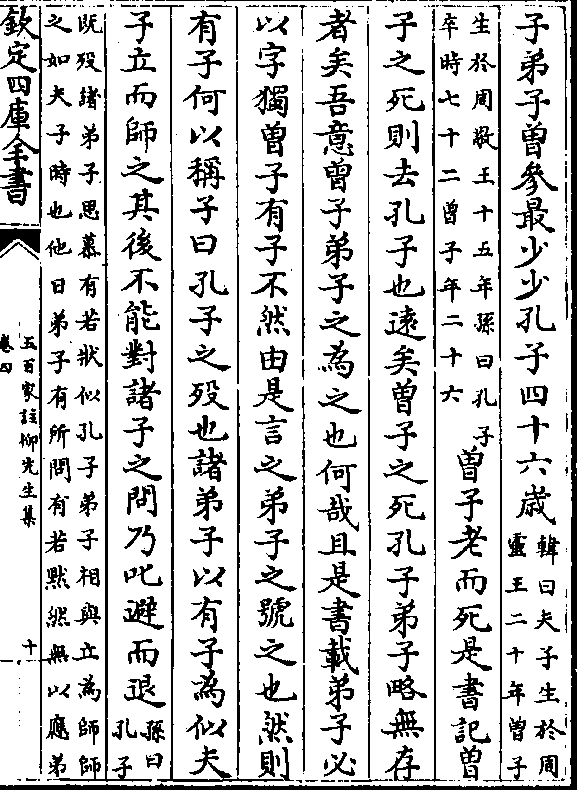 子弟子曾參最少少孔子四十六歳韓曰夫子生於周
靈王二十年曾子
生於周敬王十五年孫曰孔子
卒時七十二曾子年二十六
曾子老而死是書記曾
子之死則去孔子也遠矣曾子之死孔子弟子略無存
者矣吾意曾子弟子之為之也何哉且是書載弟子必
以字獨曾子有子不然由是言之弟子之號之也然則
有子何以稱子曰孔子之歿也諸弟子以有子為似夫
子立而師之其後不能對諸子之問乃叱避而退孫曰
孔子
既歿諸弟子思慕有若狀似孔子弟子相與立為師師
之如夫子時也他日弟子有所問有若黙然無以應弟
欽定四庫全書
五百家註柳先生集
卷四
十